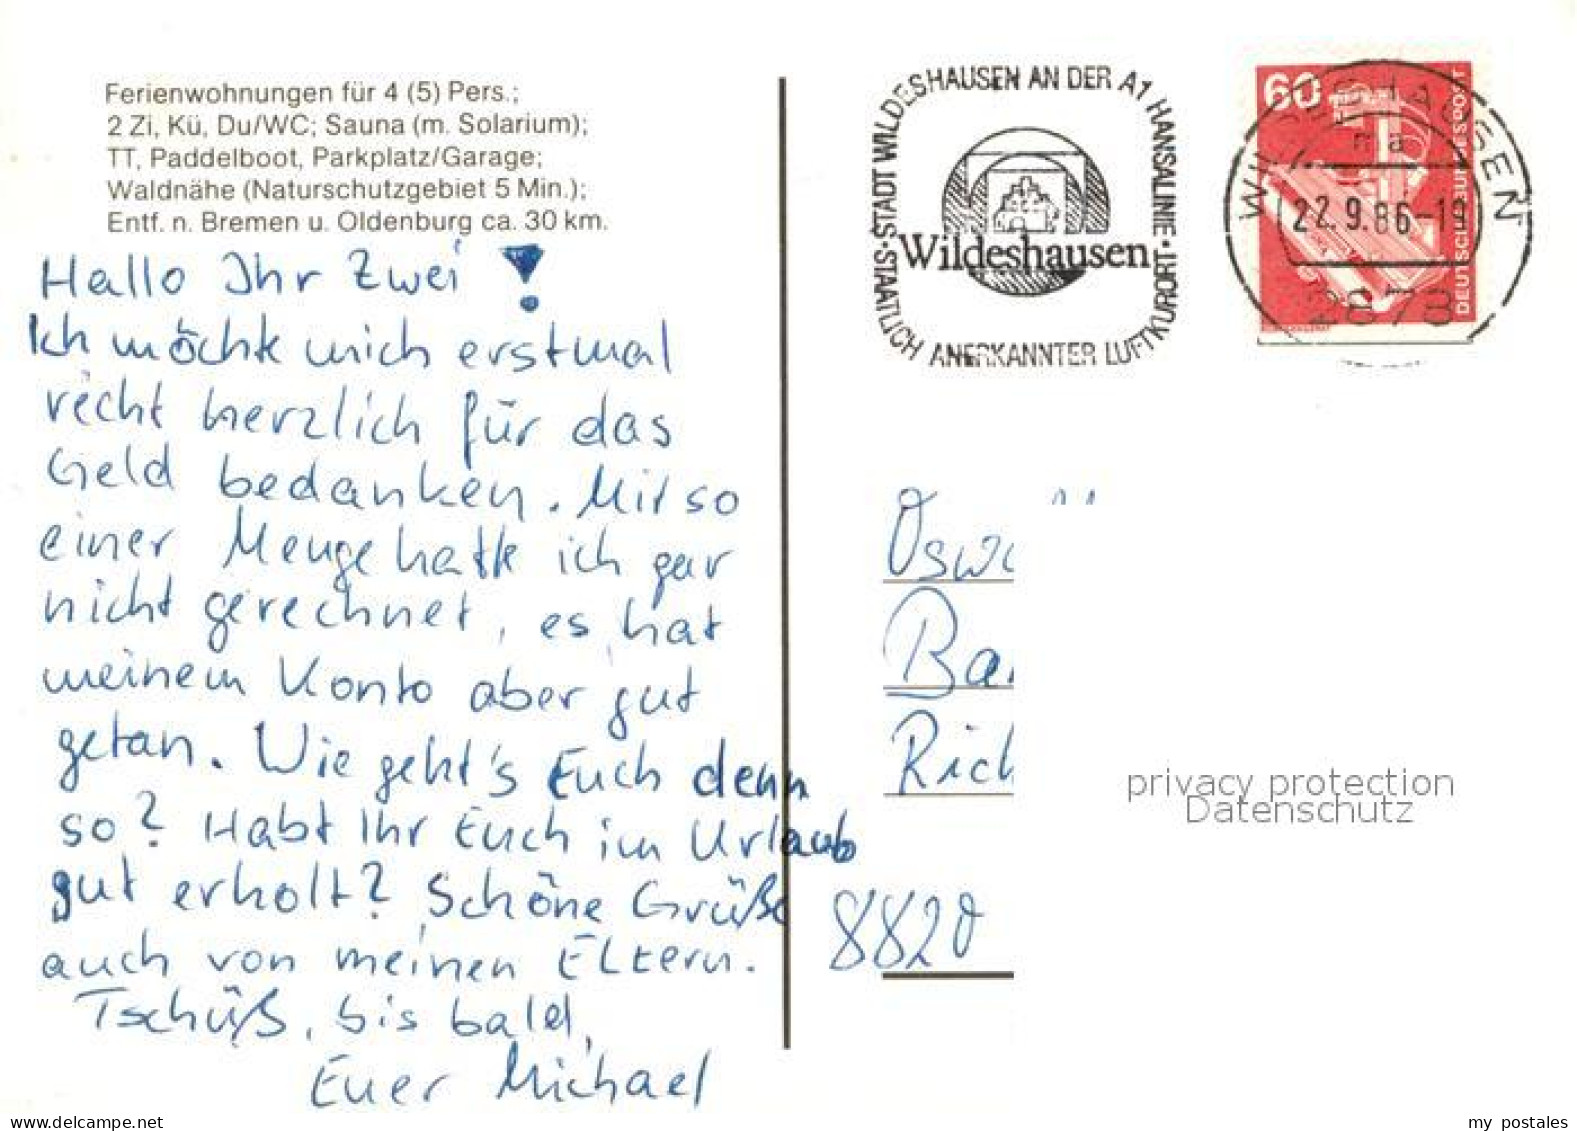 Ferienwohnungen für 4 (5) Pers.;
2 Zi, Kü, Du/WC; Sauna (m. Solarium);
TT, Paddelboot, Parkplatz/Garage;
Waldnähe (Naturschutzgebiet 5 Min.);
Entf. n. Bremen u. Oldenburg ca. 30 km.
Hallo Ihr Zwei!
Ich möchte mich erstmal
recht herzlich für das
Geld bedanken. Mit so
einer Menge hatte ich gar
nicht gerechnet, es hat
meinem Konto aber gut
getan. Wie geht's Euch denn
so? Habt Ihr Euch im Urlaub
gut erholt? Schöne Grüße
auch von meinen Eltern.
Tschüß, bis bald,
Euer Michael
STADT WILDESHAUSEN AN DER A1 HANSALINIE · STAATLICH ANERKANNTER LUFTKURORT ·
Wildeshausen
60
DEUTSCHE BUNDESPOST
WILDESHAUSEN
ma
22.9.86-19
2878
Rich
8820
privacy protection
Datenschutz
www.delcampe.net
my postales